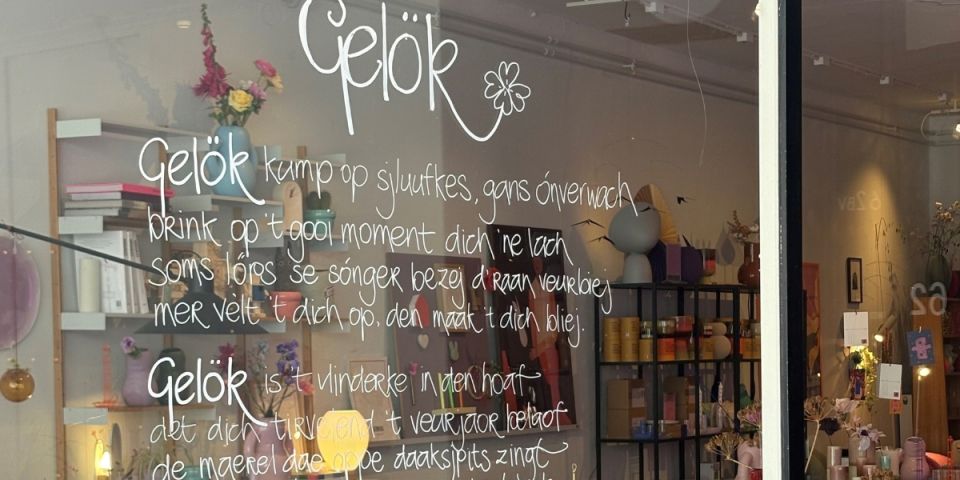 Gelök
Gelök kump op sjluufkes, gans ónverwach
brink op 't gooi moment dich 'ne lach
soms lóps se sónger bezej d'raan veurbiej
mer velt 't dich op, den maak 't dich bliej.
Gelök is 't vlinderke in den hoaf
det dich turvelend 't veurjaor belaof
de maerel dae oppe daaksjpits zingt
62BV
62